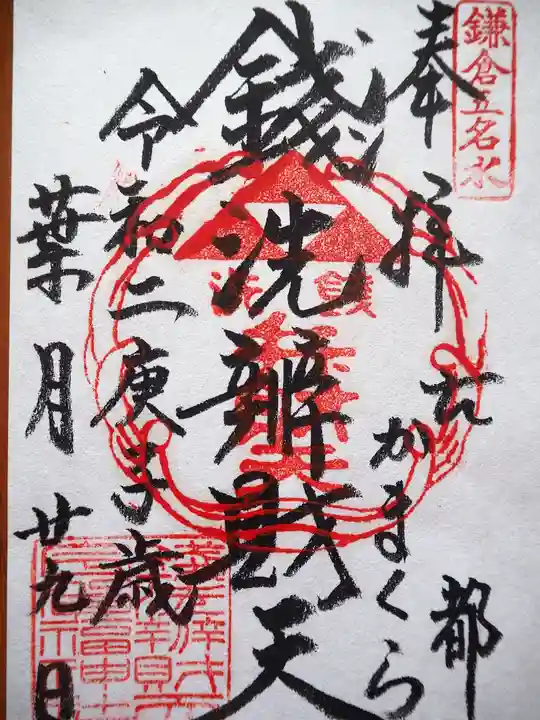 鎌倉五名水
奉拝
古都
かまくら
銭洗辨財天
令和二庚子歳
葉月廿九日
銭洗